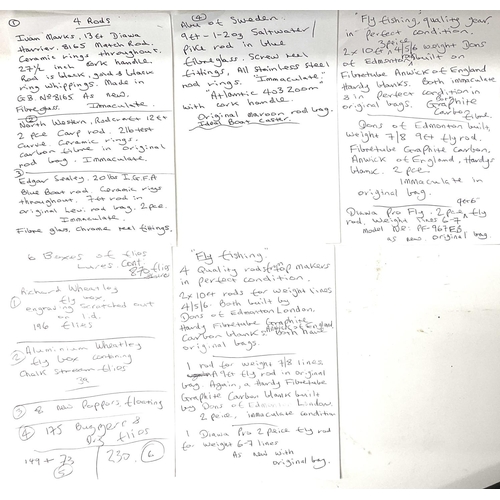 ① 4 Rods
Ivan Marks, 13ft Diawa
Harrier. 8165 Match Rod.
Ceramic rings throughout.
27½ inch cork handle
Rod is black, gold & black
ring whippings. Made in
G.B. No 8165 As new.
Fibreglass. Immaculate.
②
North Western, Rodcrafter 12ft
2 pce Carp rod. 2lb test
Curve. Ceramic rings.
carbon fibre in original
rod bag. Immaculate.
3
Edgar Sealey. 20lbs I.G.F.A
Blue Boat rod. Ceramic rings
throughout. 7ft rod in
original rod bag. 2pce.
Immaculate.
Fibre glass. Chrome reel fittings.
④
Abu of Sweden.
9ft - 1-2oz Saltwater/
pike rod in blue
fibreglass. Screw reel
fittings, All Stainless Steel
rod rings. "Immaculate."
"Atlantic 403 Zoom
with cork handle.
Original maroon rod bag.
Ideal Boat Caster
"Fly fishing, quality gear
in perfect condition.
2 x 10ft, 4/5/6 weight Dons
of Edmonton built on
Fibretube Anwick of England
Hardy blanks. Both immaculate
& in perfect condition in
original bags. Graphite
Carbon
Dons of Edmonton built,
weight 7/8 9ft fly rod,
Fibretube Graphite Carbon,
Anwick of England, Hardys
blank. 2 pce.
Immaculate in
original bag.
Diawa Pro Fly. 2 pce, fly
rod. Weight lines 6-7
model No: PF-967
as new original bag.
6 Boxes of flies
Lures
Richard Wheatley
① fly box.
engraving scratched out
on lid.
196 flies
② Aluminium Wheatley
fly box containing
Chalk stream flies
39
③ 8 new Poppers, floating
④ 175 Buzzers &
Dry flies
144 + 73
⑤
230. ⑥
"Fly fishing"
4 Quality rods, top makers
in perfect condition.
2 x 10ft rods for weight lines
4/5/6. Both built by
Dons of Edmonton London.
Hardy Fibretube Graphite
Carbon blanks Both have
original bags.
1 rod for weight 7/8 lines
A 9ft fly rod in original
bag. Again, a Hardy Fibretube
Graphite Carbon blank built
by Dons of London
2 peice, immaculate condition
1 Diawa Pro 2 peice fly rod
for weight 6-7 lines
As new with
original bag.